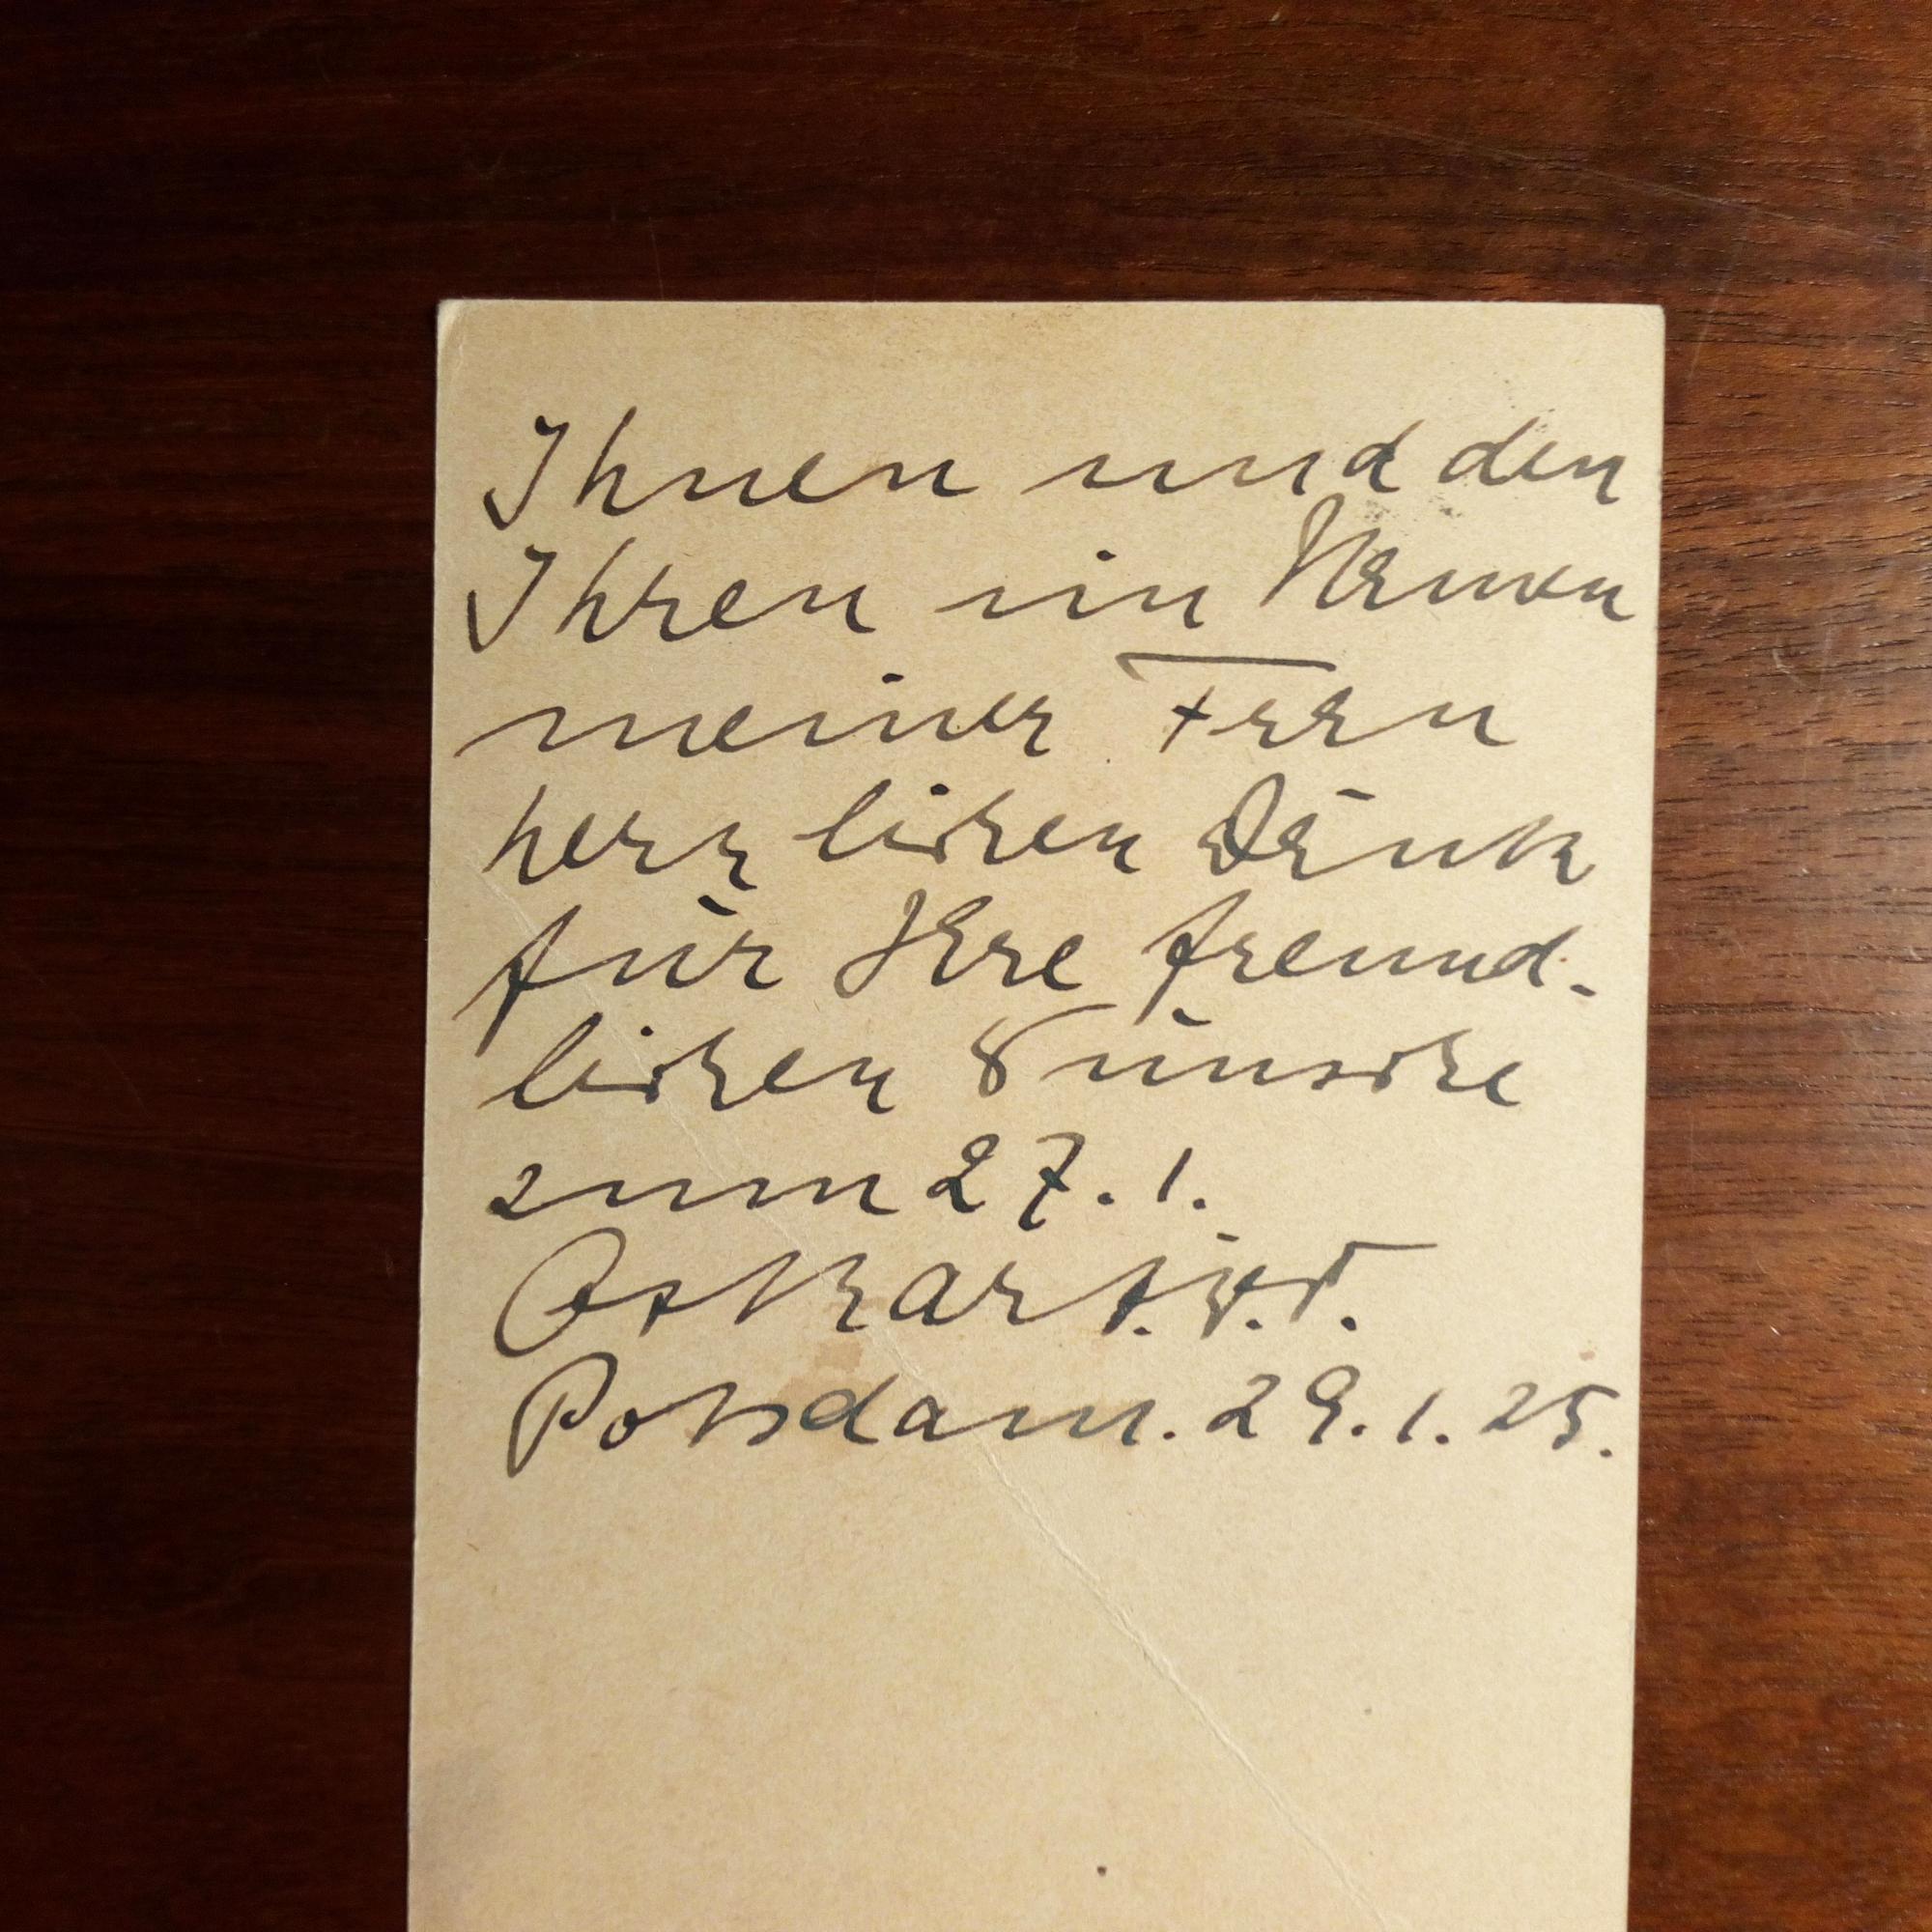 Ihnen und den
Ihren im Namen
meiner Frau
herzlichen Dank
für Ihre freund-
lichen Wünsche
zum 27. 1.
Oskar P. v. P.
Potsdam. 29. 1. 25.